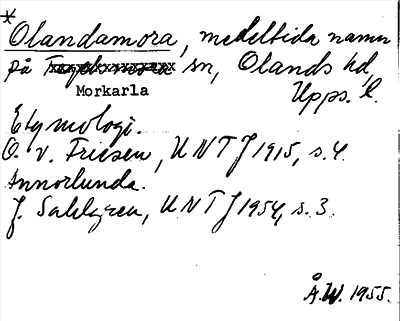 *
Olandamora, medeltida namn
på sn, Olands hd,
Morkarla
Upps. l.
Etymologi.
O. v. Friesen, UNT J 1915, s. 4.
Annorlunda.
J. Sahlgren, UNT J 1954, s. 3.
Å.W. 1955.